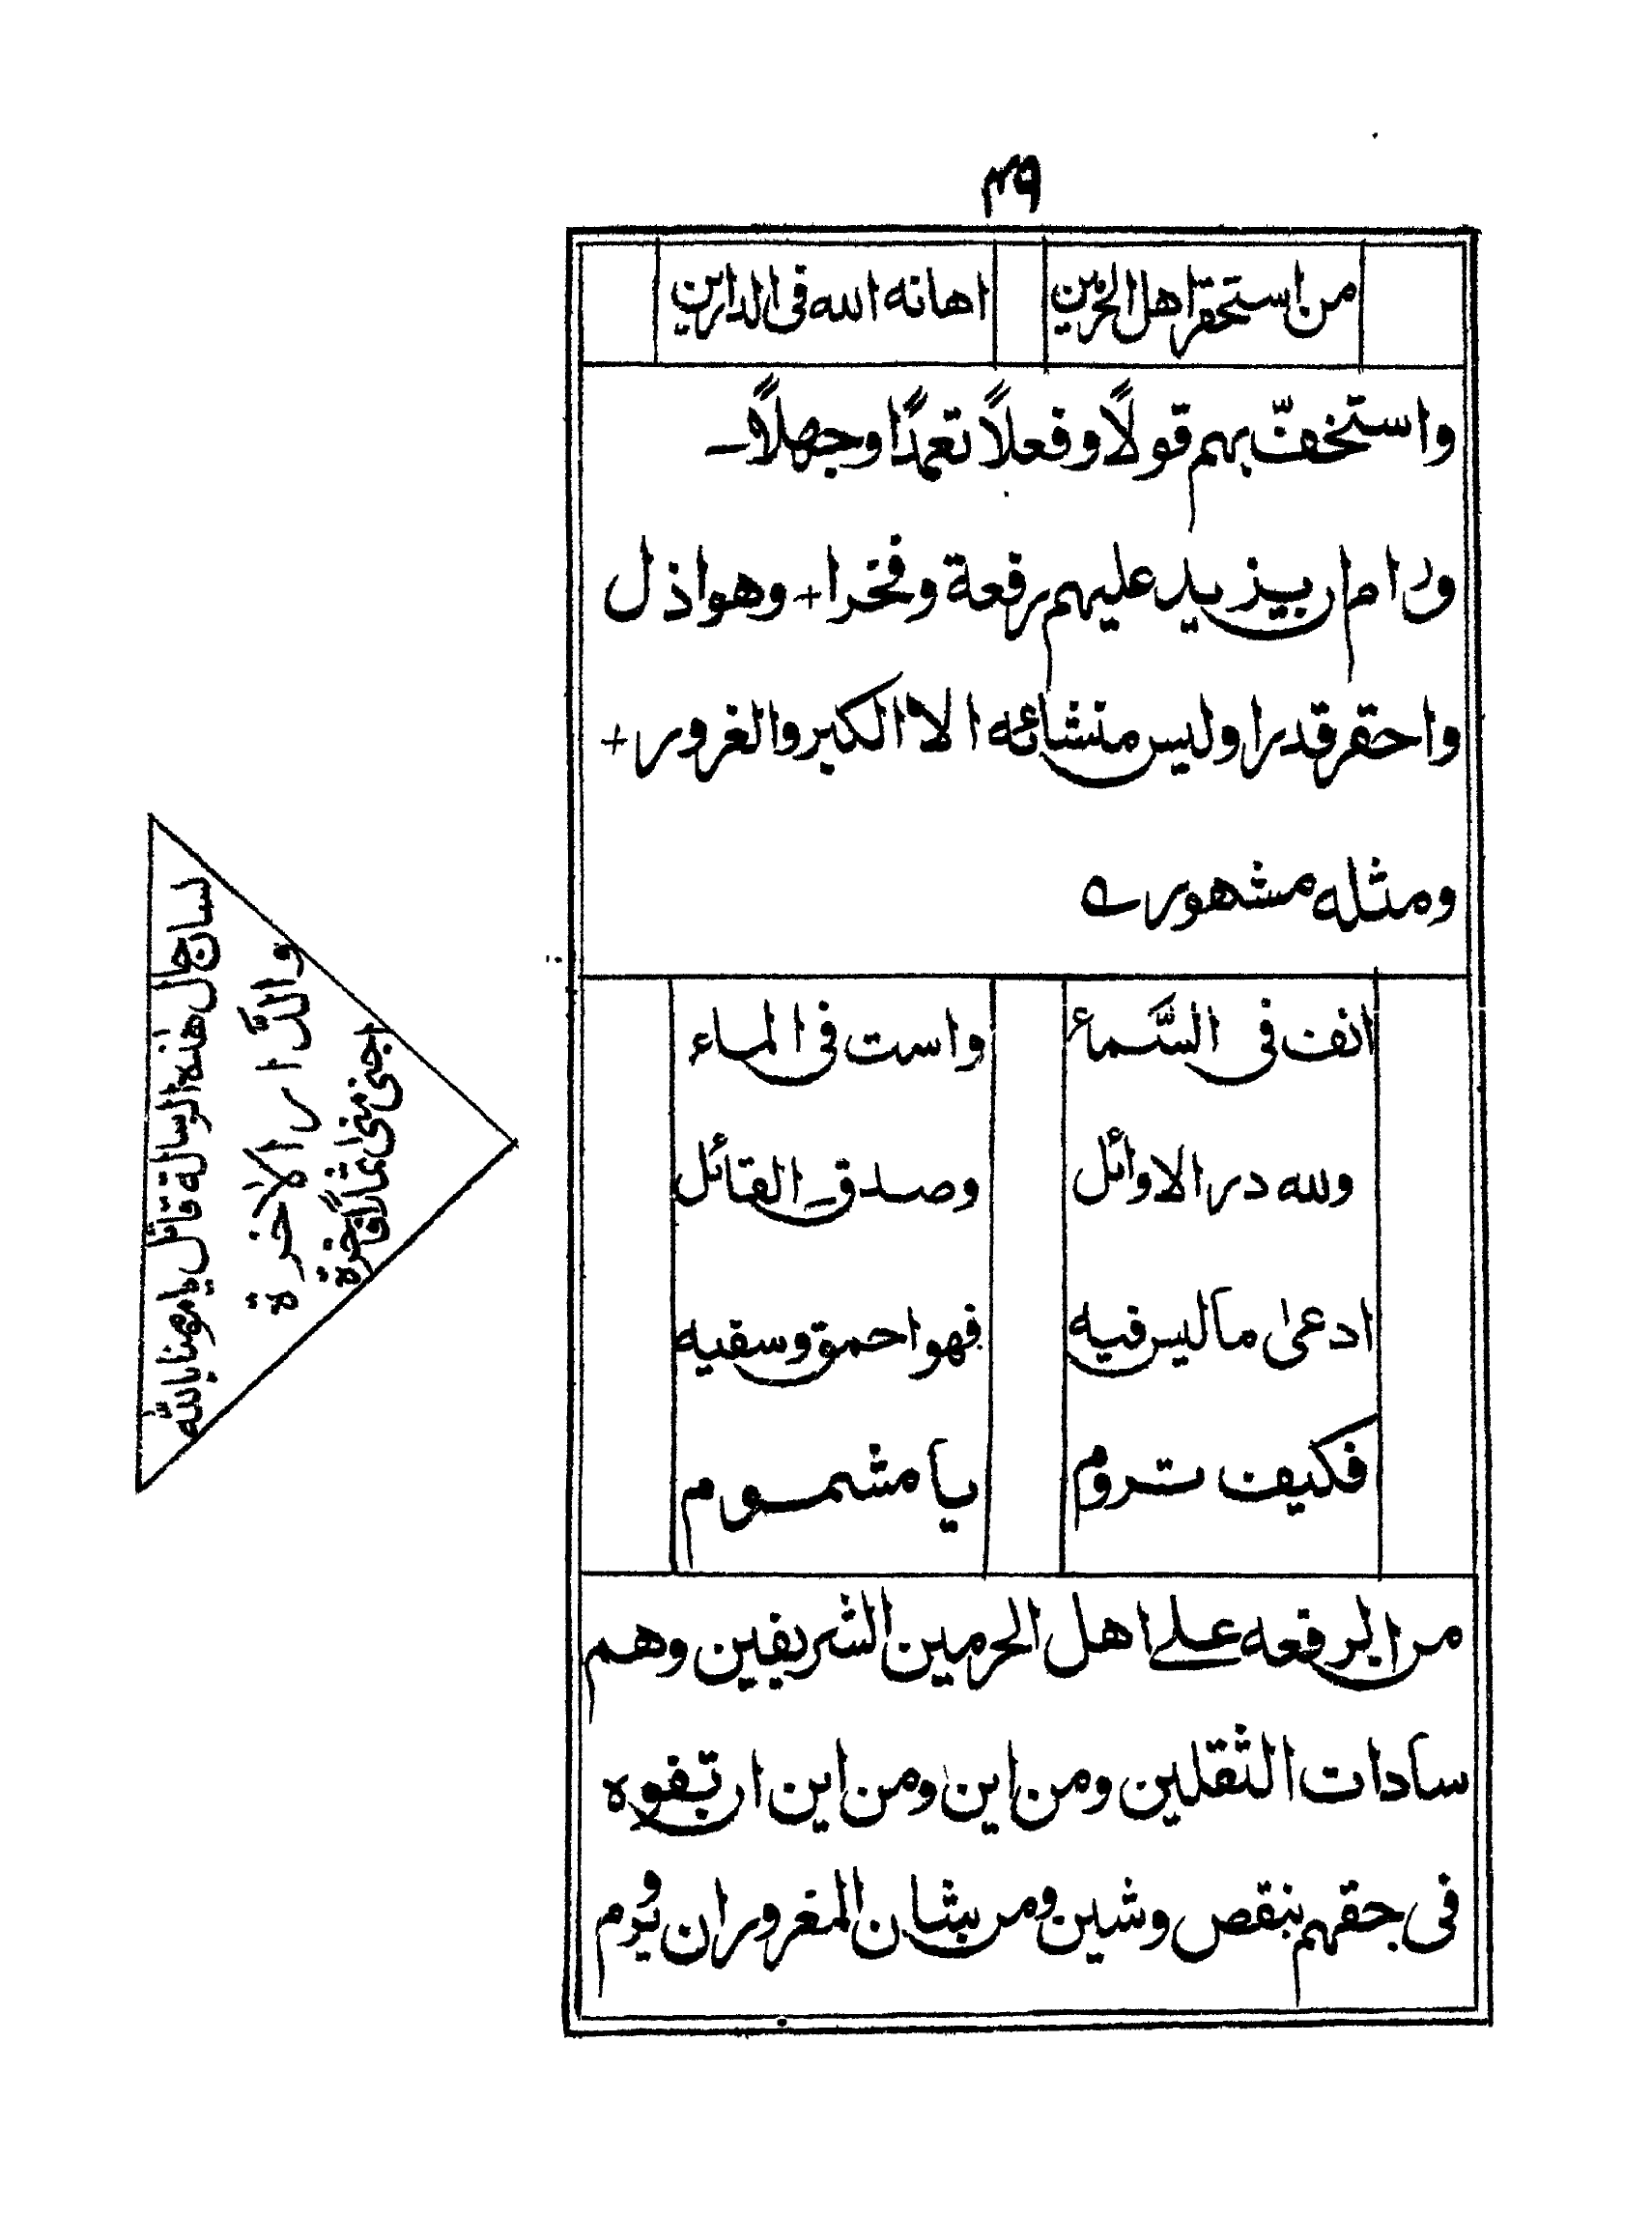 ٣٩
من استحقر اهل الحرمين اهانه الله فى الدارين
واستخفّ بهم قولاً وفعلاً تعمدًا وجهلاً ــ
ورام ان يزيد عليهم رفعة وفخرا + وهو اذل
واحقر قدرا وليس منشائه الا الكبر والغرور +
ومثله مشهورے
انف فى السَّماء واست فى الماء
ولله در الاوائل وصدق القائل
ادعىٰ ما ليس فيه فهو احمق وسفيه
فكيف تروم يا مشموم
من الرفعه علے اهل الحرمين الشريفين وهم
سادات الثقلين ومن اين ومن اين ان تفوه
فى حقهم بنقص وشين ومن شان المغرور ان يروم
لسان حال هذه الرسالة قائل يا مؤمنا بالله
والدَّار الآخرة
اجنى منى ثمارًا فاخرة